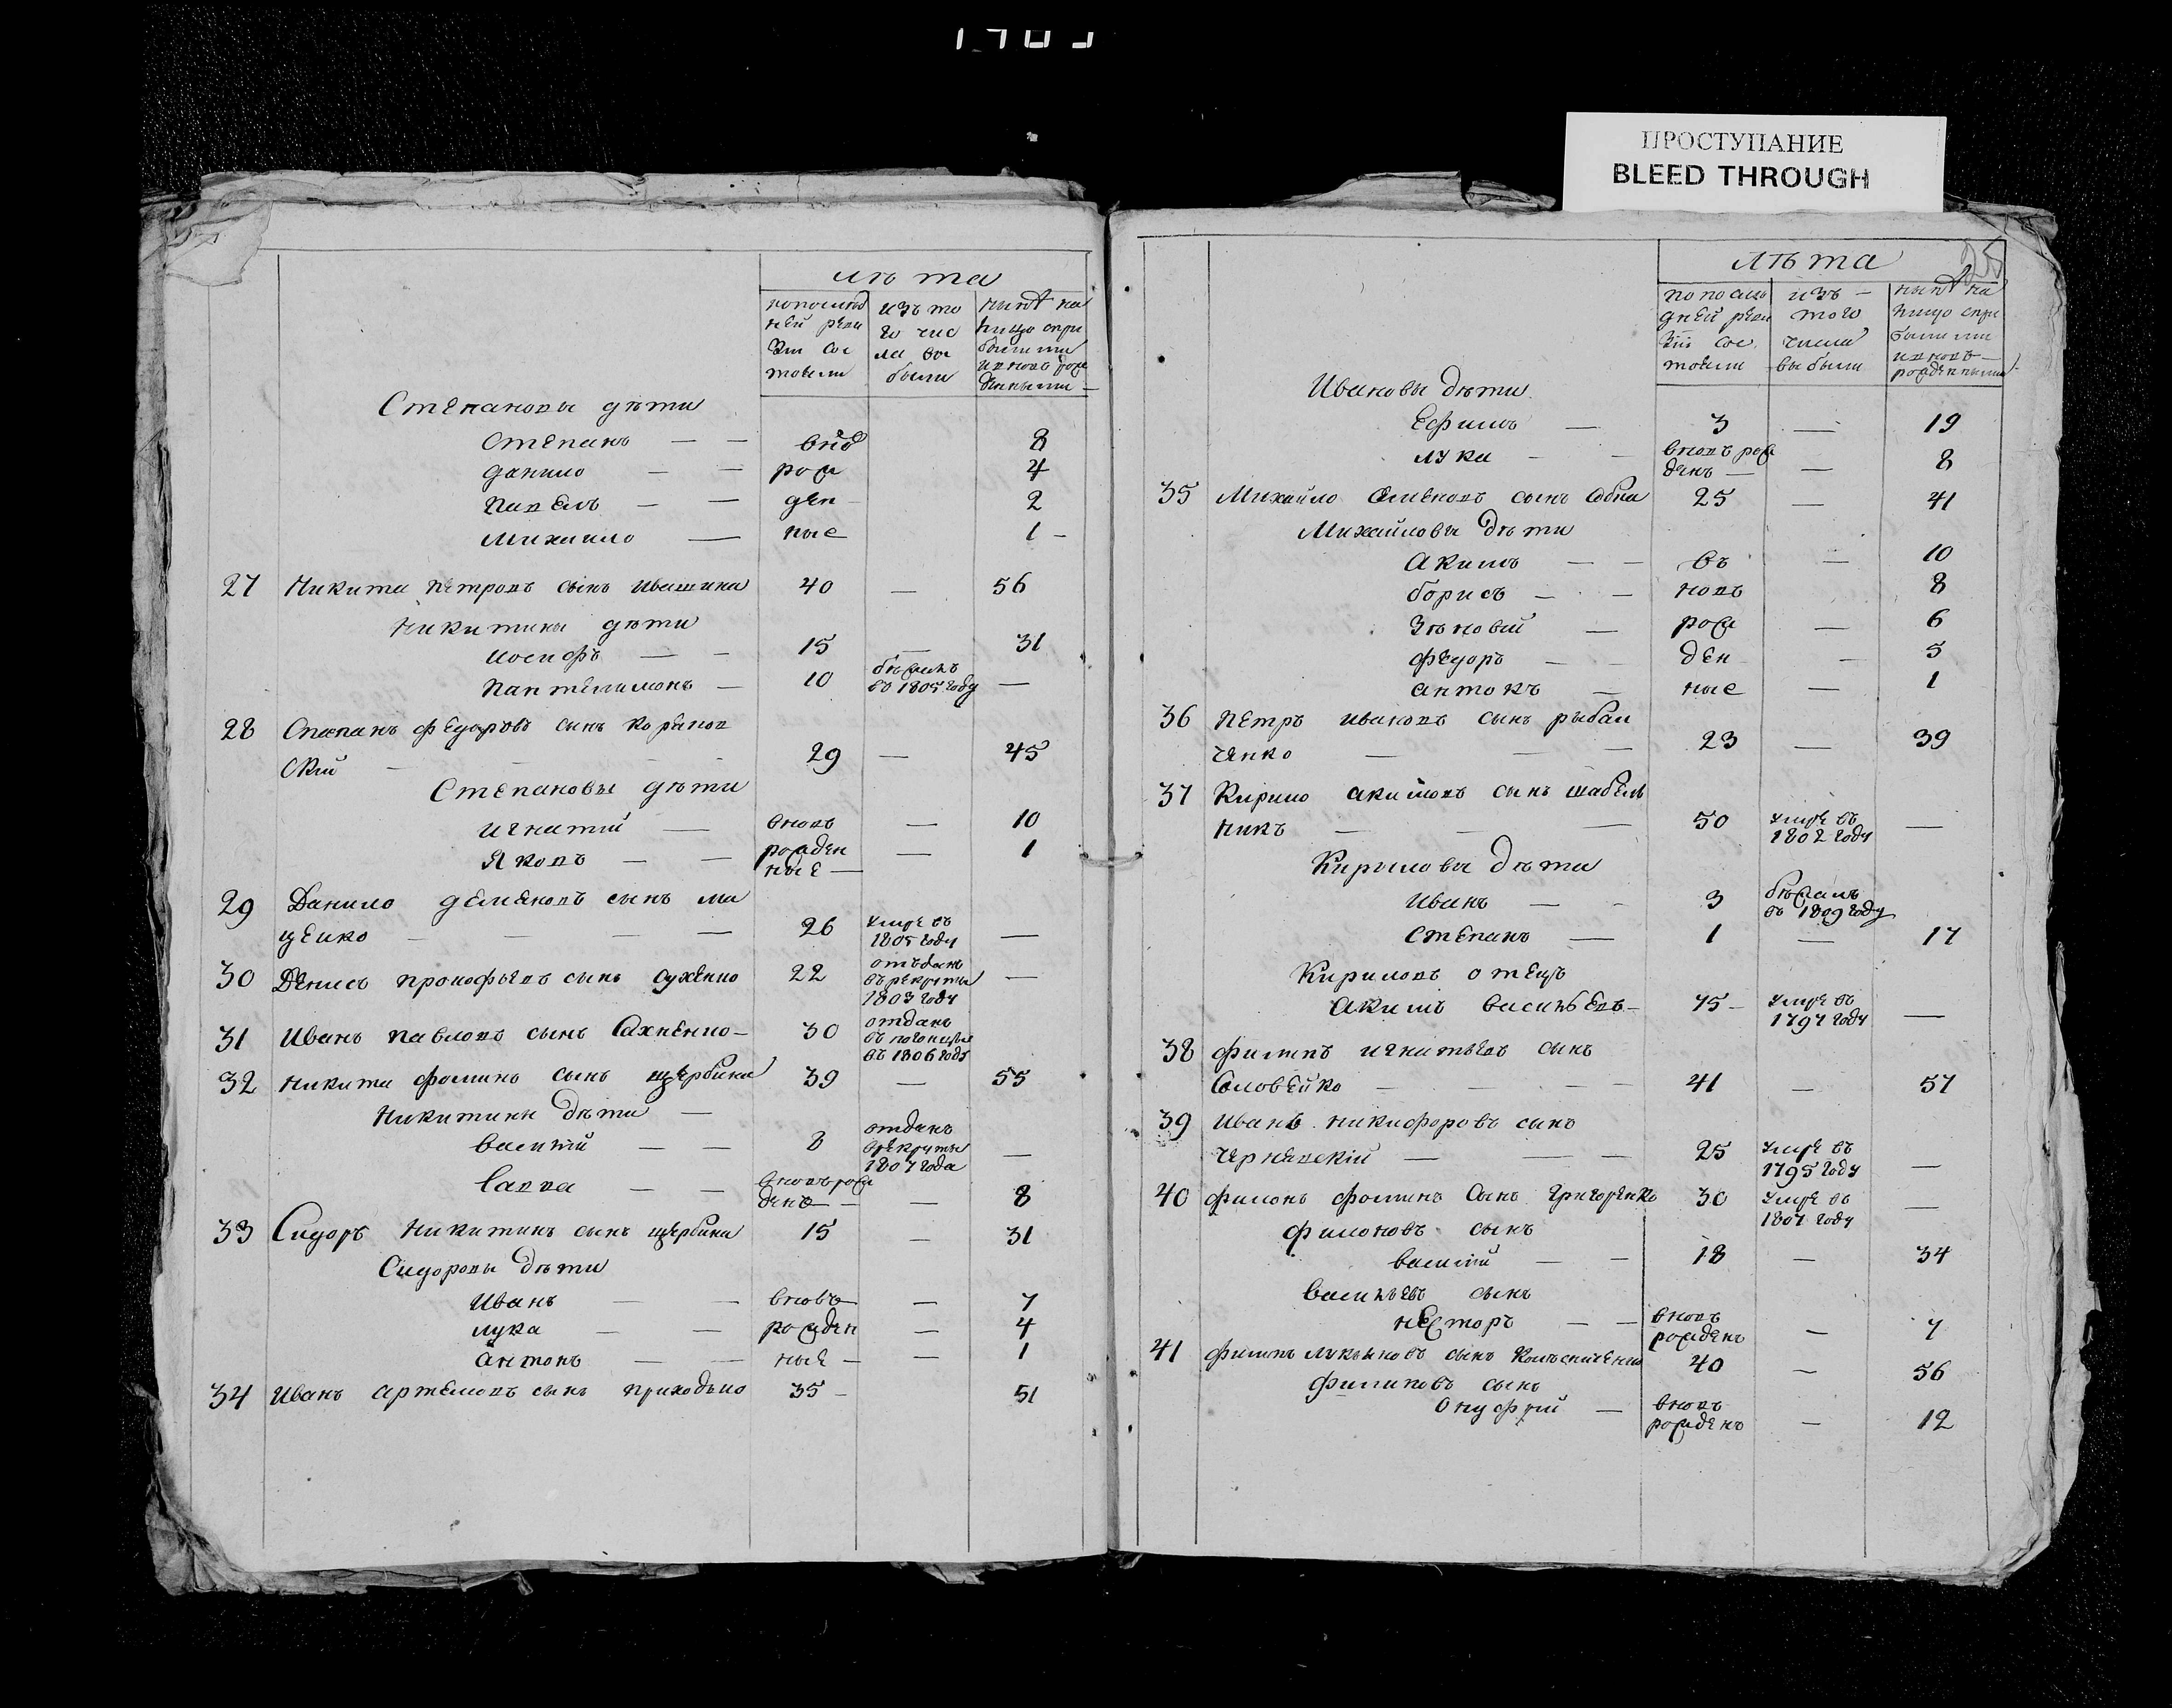 ПРОСТУПАНИЕ
BLEED THROUGH
25
лѣта
по послѣд
ней реви
зіи сос
тояли
изъ то
го чис
ла вы
были
нынѣ на
лицо съ при
былыми
и вновь рож
денными
Степановы дѣти
Степанъ — — внов 8
данило — — рож 4
Павелъ — — ден 2
Михаило — ные 1
27 Никита Петровъ сынъ Ивашина 40 — 56
Никитины дѣти
Иосифъ — — 15 — 31
Пантелимонъ — 10 бѣжалъ въ 1805 году —
28 Степанъ Федоровъ сынъ
скій — 29 — 45
Степановы дѣти
Игнатій — вновь — 10
Яковъ — — рожден — 1
ные —
29 Данило деменовъ сынъ ма
ценко — — — — 26 умре въ 1805 году —
30 Денисъ прокофьевъ сынъ Сухенко 22 отъданъ въ рекруты 1803 году —
31 Иванъ павловъ сынъ Сахненко — 30 отданъ въ погонцы въ 1806 году
32 Никита фоминъ сынъ щербина 39 — 55
Никитины дѣти —
василій — — 8 отданъ в рекруты 1807 года —
Савва — — вновь рож
денъ — — 8
33 Сидоръ Никитинъ сынъ щербина 15 — 31
Сидоровы дѣти
Иванъ — — вновь — 7
лука — — рожден — 4
антонъ — — ные — — 1
34 Иванъ артемовъ сынъ приходько 35 — 51
лѣта
по послѣ
дней реви
зіи сос
тояли
изъ —
того
числа
выбыли
нынѣ на
лицо съ при
былыми
и вновь —
рожденными
Ивановы дѣти
Ефимъ — 3 — 19
лука — — вновь рож
денъ — — 8
35 Михайло Семеновъ сынъ 25 — 41
Михайловы дѣти
Акимъ — — въ — 10
борисъ — — новь 8
Зѣновій — рож — 6
федоръ — ден — 5
антонъ — ные — 1
36 Петръ Ивановъ сынъ рыбал
ченко — — — 23 — 39
37 Кирило акимовъ сынъ шабель
никъ — — — 50 умре въ 1802 году —
Кириловы дѣти
Иванъ — — 3 бѣжалъ въ 1809 году
Степанъ — 1 — 17
Кириловъ отецъ
Акимъ васильевъ — 75 — умре въ 1797 году —
38 филипъ игнатьевъ сынъ
Соловейко — — — — 41 — 57
39 Иванъ никифоровъ сынъ
Чернявскій — — — 25 умре въ 1795 году —
40 филонъ фоминъ Сынъ григоренко 30 умре въ 1807 году —
филоновъ сынъ
василій — — 18 — 34
васильевъ сынъ
нЕсторъ — — вновь
рожденъ — 7
41 филипъ лукьяновъ сынъ Колесниченко 40 — 56
филиповъ сынъ
Онуфрій — вновь
рожденъ — 12